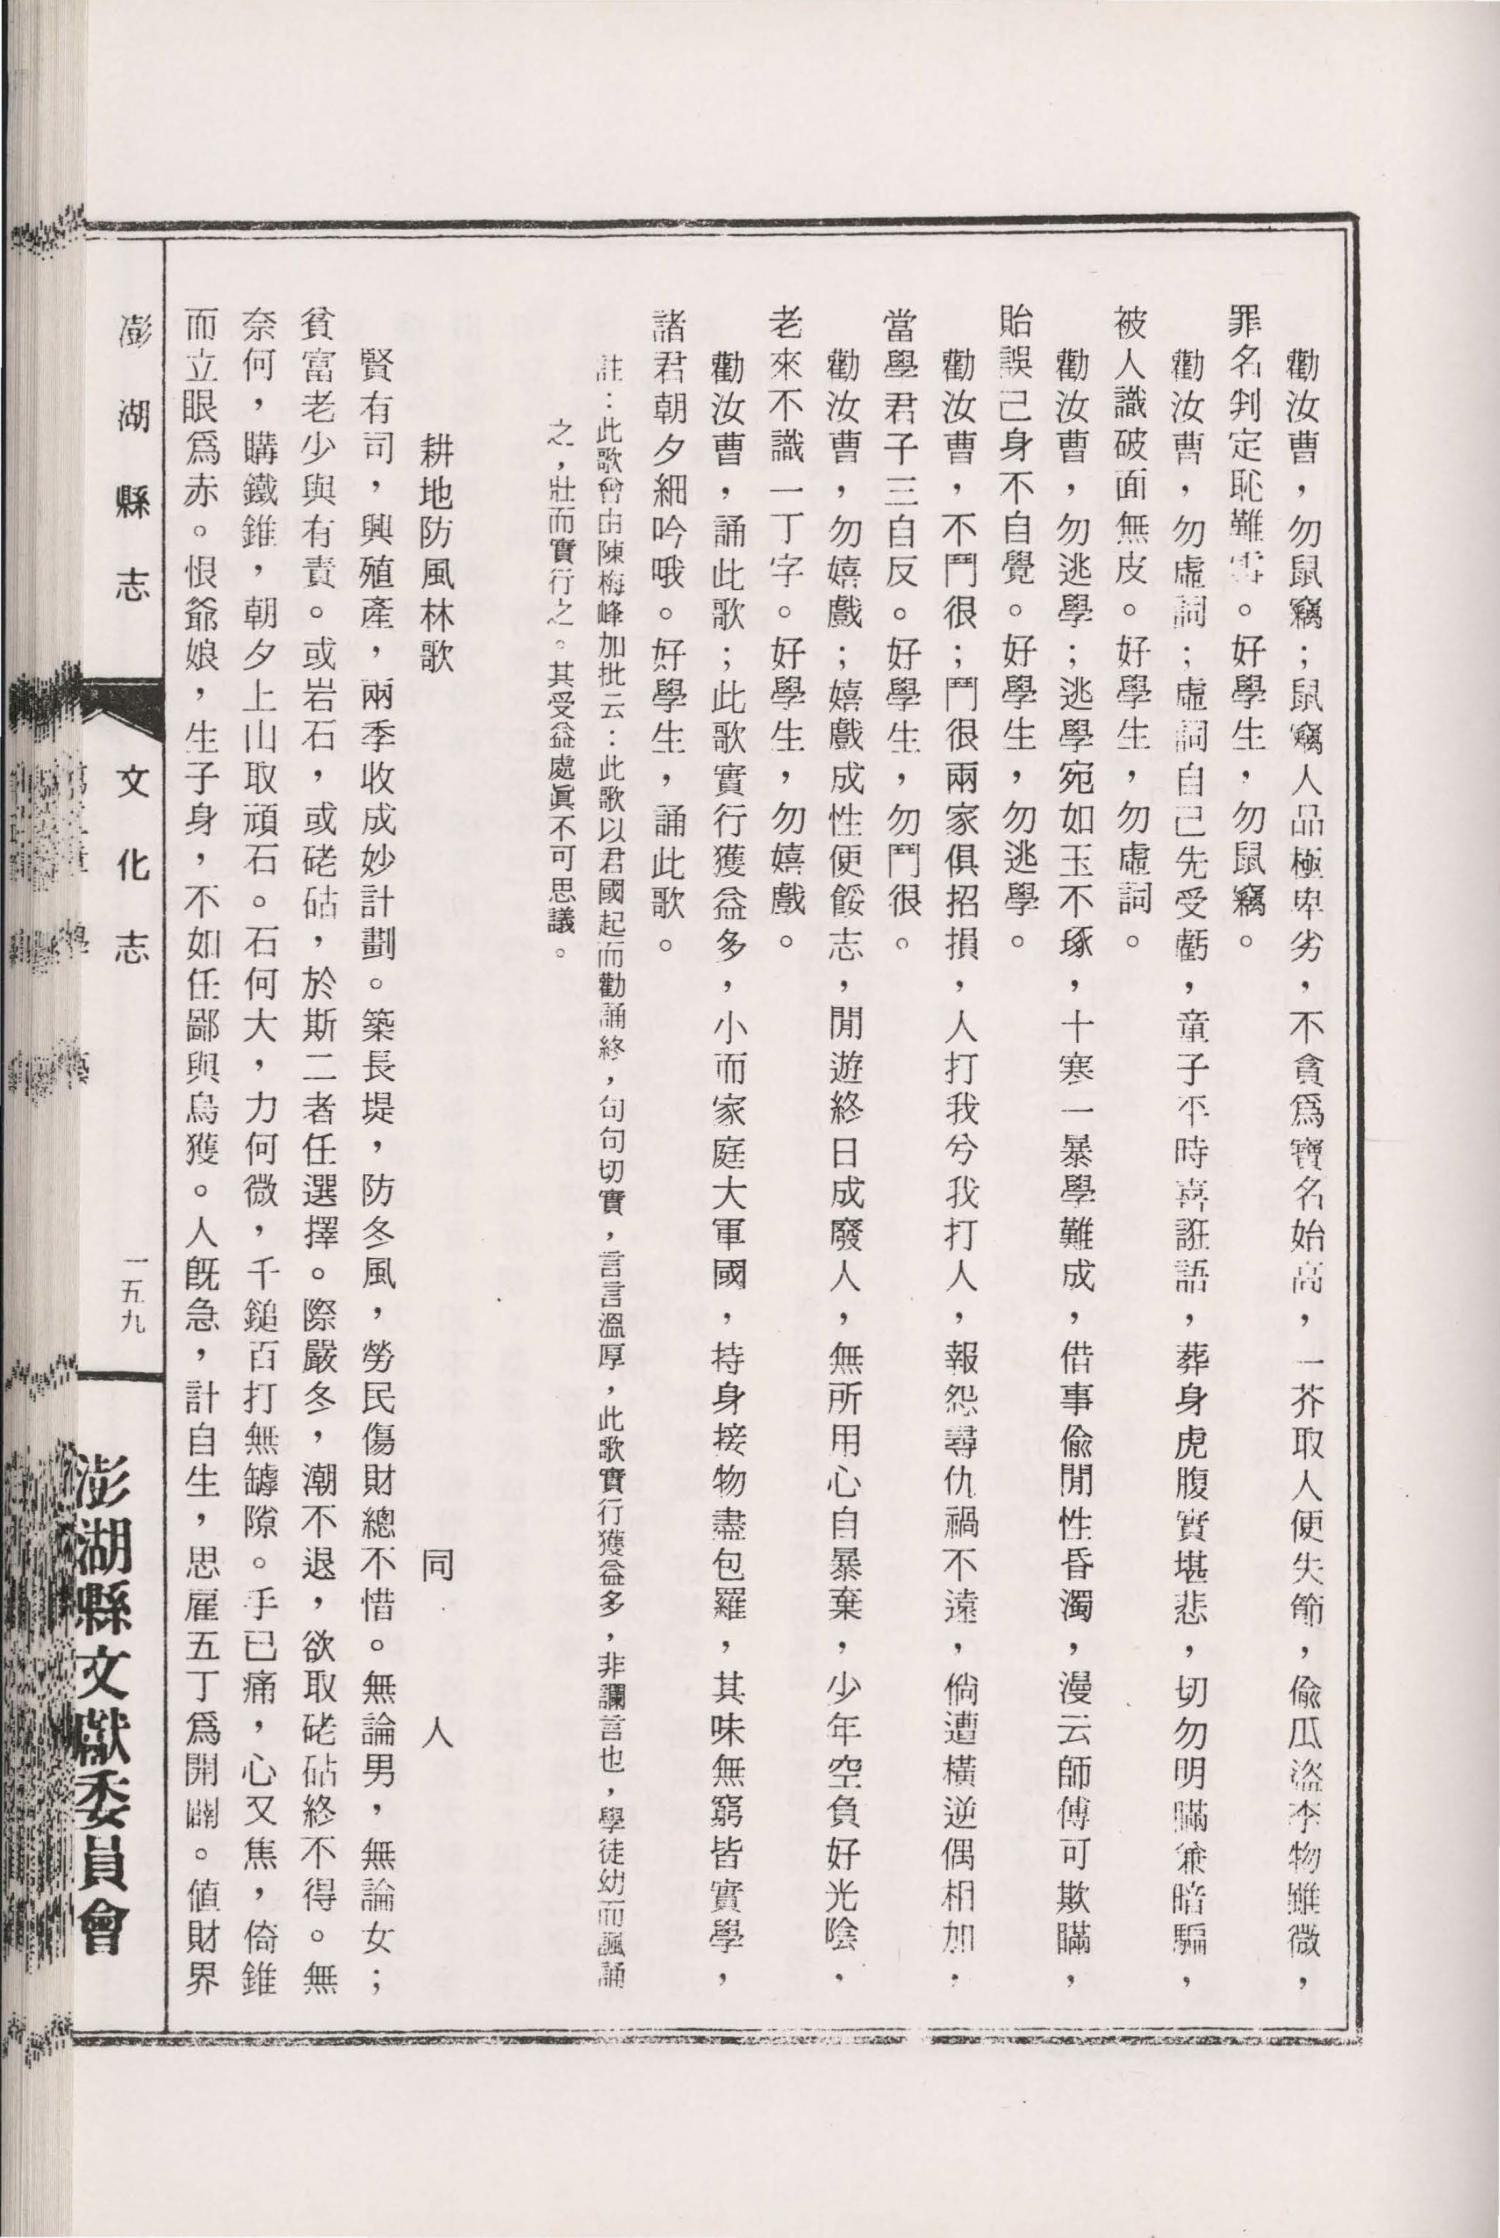 勸汝曹，勿鼠竊；鼠竊人品極卑劣，不貪爲寶名始高，一芥取人便失節，偸瓜盜李物雖微，
罪名判定恥難雪。好學生，勿鼠竊。
勸汝曹，勿虛詞；虛詞自己先受虧，童子平時喜誑語，葬身虎腹實堪悲，切勿明瞞兼暗騙，
被人識破面無皮。好學生，勿虛詞。
勸汝曹，勿逃學；逃學宛如玉不琢，十寒一暴學難成，借事偸閒性昏濁，漫云師傅可欺瞞，
貽誤己身不自覺。好學生，勿逃學。
勸汝曹，不鬥很；鬥很兩家俱招損，人打我兮我打人，報怨尋仇禍不遠，倘遭橫逆偶相加，
當學君子三自反。好學生，勿鬥很。
勸汝曹，勿嬉戲；嬉戲成性便餒志，閒遊終日成廢人，無所用心自暴棄，少年空負好光陰，
老來不識一丁字。好學生，勿嬉戲。
勸汝曹，誦此歌；此歌實行獲益多，小而家庭大軍國，持身接物盡包羅，其味無窮皆實學，
諸君朝夕細吟哦。好學生，誦此歌。
註：此歌曾由陳梅峰加批云：此歌以君國起而勸誦終，句句切實，言言溫厚，此歌實行獲益多，非讕言也，學徒幼而諷誦
之，壯而實行之。其受益處眞不可思議。
耕地防風林歌　同人
賢有司，興殖產，兩季收成妙計劃。築長堤，防冬風，勞民傷財總不惜。無論男，無論女；
貧富老少與有責。或岩石，或硓砧，於斯二者任選擇。際嚴冬，潮不退，欲取硓砧終不得。無
奈何，購鐵錐，朝夕上山取頑石。石何大，力何微，千鎚百打無罅隙。手已痛，心又焦，倚錐
而立眼爲赤。恨爺娘，生子身，不如任鄙與烏獲。人旣急，計自生，思雇五丁爲開闢。値財界
澎湖縣志　文化志　一五九
澎湖縣文獻委員會